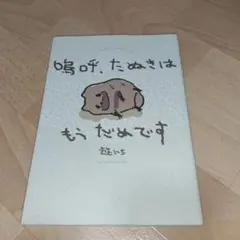 嗚呼、たぬきは
もうだめです